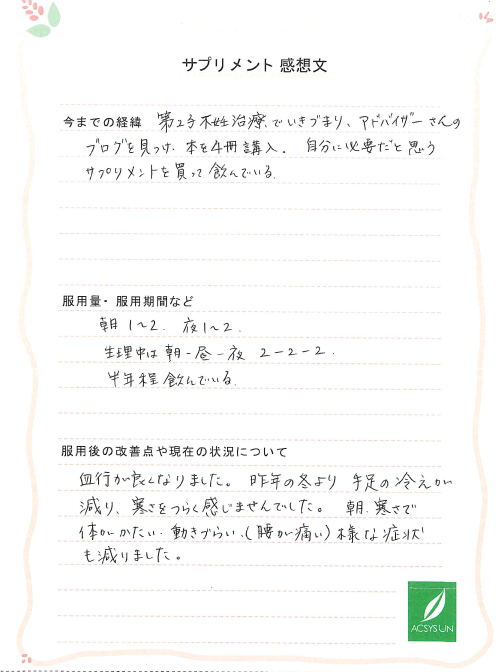 サプリメント 感想文
今までの経緯 第2子不妊治療でいきづまり、アドバイザーさんの
ブログを見つけ、本を4冊購入。 自分に必要だと思う
サプリメントを買って飲んでいる.
服用量・服用期間など
朝 1〜2. 夜 1〜2.
生理中は 朝-昼-夜 2-2-2.
半年程 飲んでいる.
服用後の改善点や現在の状況について
血行が良くなりました。 昨年の冬より 手足の冷えが
減り、寒さをつらく感じませんでした。 朝、寒さで
体がかたい・動きづらい、(腰が痛い) 様な症状
も減りました。
ACSYSUN